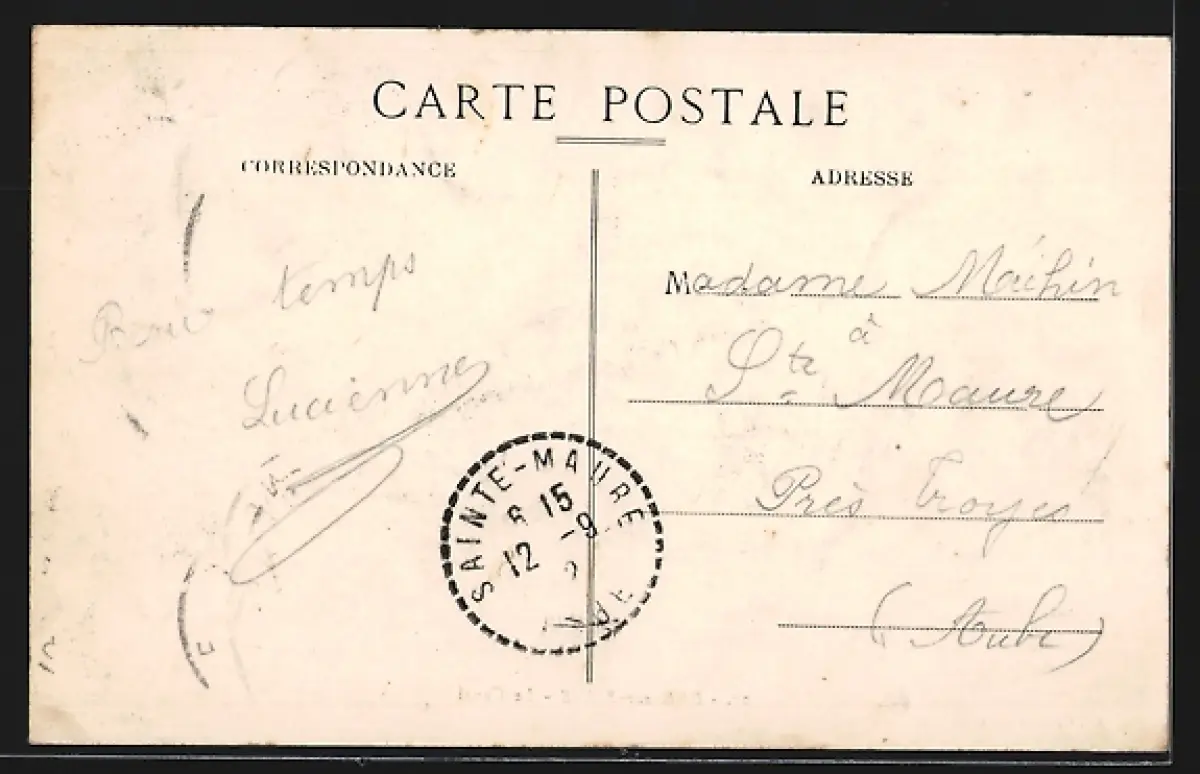 CARTE POSTALE
CORRESPONDANCE
ADRESSE
temps
Lucienne
Madame Machin
à
Ste Maure
Près Troyes
(Aube)
SAINTE-MAURE
8 15
12 -9